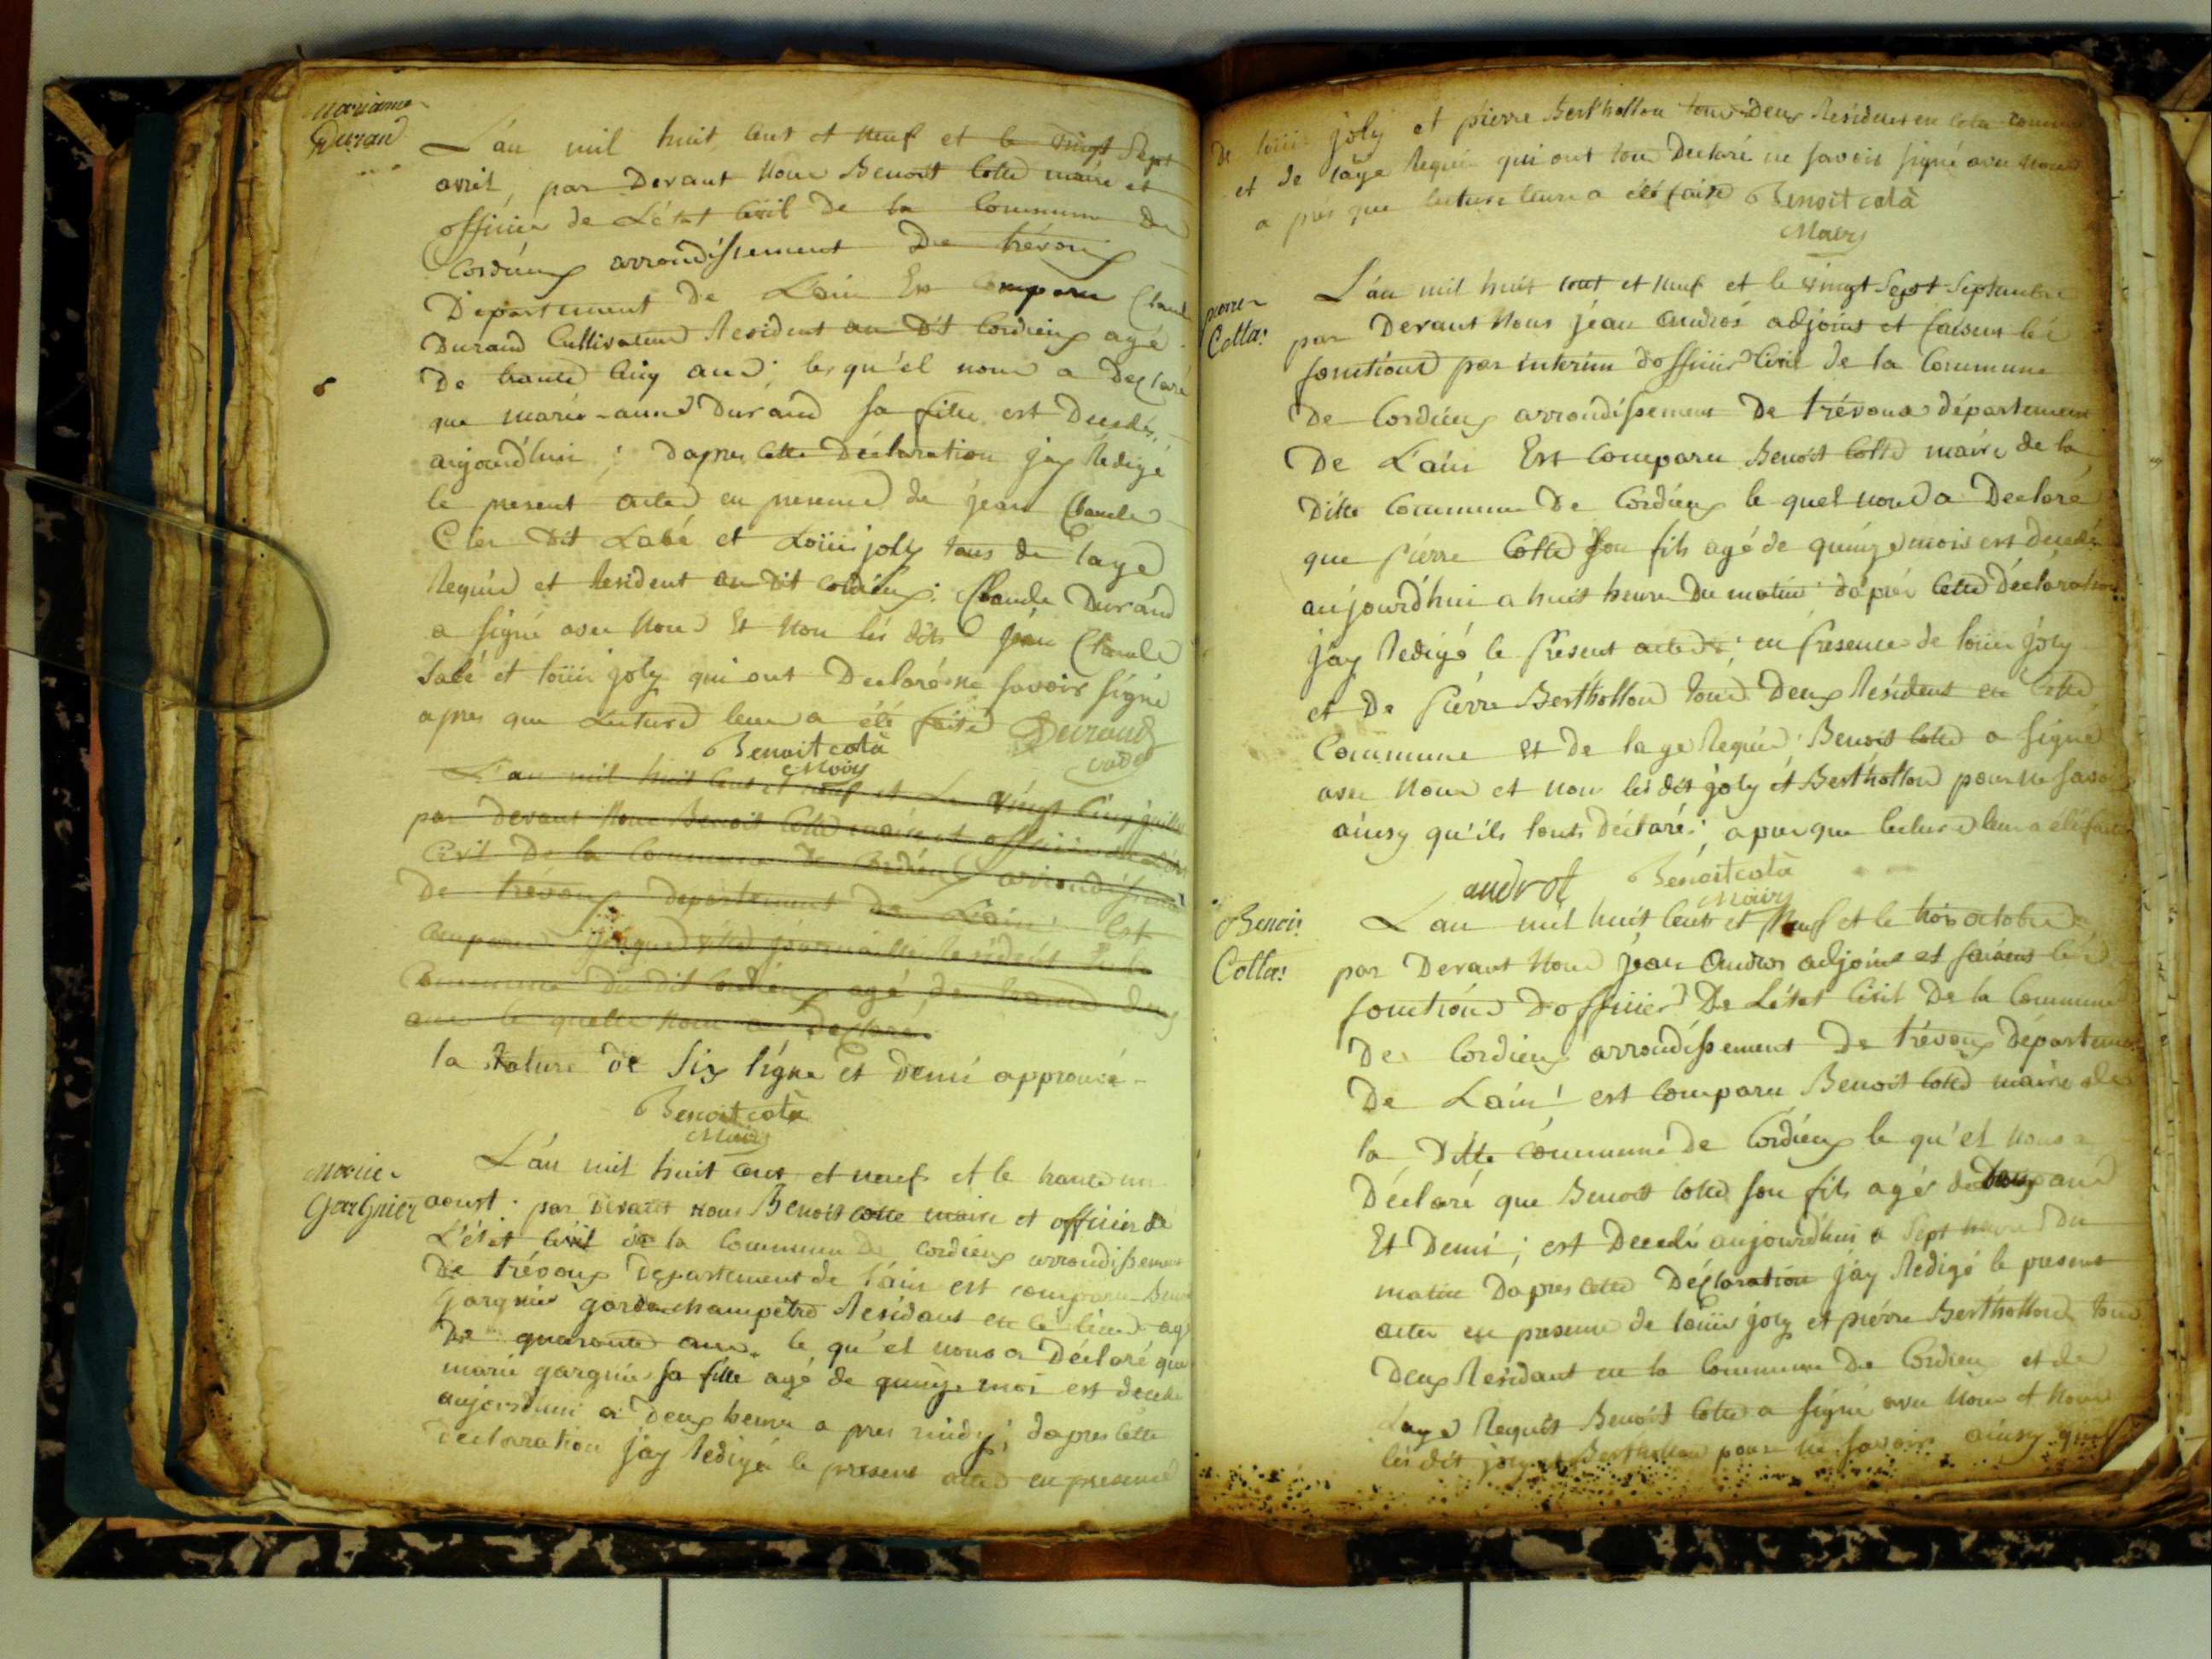 mariamne
Durand
L'an mil huit Cent et neuf et le vingt Sept
avril, par Devant Nous Benoit Cotte maire et
officier de L'état Civil de la Commune de
Cordieux arrondissement De trévoux
Département de Lain Est Comparu Claude
Durand Cultivateur Resident au Dit Cordieux agé
De trante Cinq ans; le qu'el nous a Declaré
que marie-anne Durand sa fille est Decedé
aujourd'hui; Dapres Cette Declaration jay Redigé
le present acte en presence de jean Claude
Cler Dit Labé et Loüis joly tous de lage
Requis et Resident au Dit Cordieux; Claude Durand
a signé avec Nous Et Non les dits jean Claude
Labé et loüis joly qui ont Declaré ne savoir signé
apres que Lecture leur a été faite Durand
Benoit cotà
Maire
L'an mil huit Cent et neuf et Le vingt Cinq juillet
par devant Nous Benoit Cotte maire et officier de
Civil De la Commune De Cordieux arrondissement
De trévoux departement De Lain; Est
Comparu
Commune du dit Cordieux agé De trante Deux
ans le quelle Nous a Declare
la Rature de Six ligne et demi approuvé
Benoit cotà
Maire
Marie
Gargnier
L'an mil huit Cent et neuf et le trante un
aoust. par Devant nous Benoit Cotte maire et officier de
L'état Civil de la Commune De Cordieux arrondissement
De trévoux Departement de l'ain est comparu
Gargnier garde champêtre Residant en ce lieu agé
De quarante ans. le qu'el nous a Déclaré que
marie gargnier sa fille agé de quinze moi est decede
aujourdhui a Deux heure a pres midy; dapres Cette
declaration jay Redigé le present acte en presence
De loüis joly et pierre Berthollon tous Deux Residents en Cette commune
et de l'age Requis qui ont tous Declaré ne savoir signé avec nous
a près que lecture leur a été faite Benoit cotà
Maire
pierre
Cotta:
L'an mil huit cent et neuf et le vingt Sept Septembre
par Devant Nous jean androt adjoint et faisent lés
fonctions par interim d'officier Civil de la Commune
De Cordieux arrondissement De trévoux département
De L'ain Est Comparu Benoit Cotte maire de la
Ditte Commune De Cordieux le quel nous a Declaré
que Pierre Cotte Son fils agé de quinze mois est decedé
aujourd'hui a huit heure Du matin; d'après Cette Déclaration
jay Redigé le Present acte; en Presence de loüis joly
et De Pierre Berthollon tous Deux Resident en Cette
Commune Et de lage Requis; Benoit Cotte a signé
avec Nous et non les dit joly et Berthollon pour ne savoir
ainsy qu'ils lonts Déclaré; apres que lecture leur a été faite
androt Benoit cotà
Maire
Benoi
Cotta:
L'an mil huit Cent et Neuf et le trois octobre
par Devant Nous jean androt adjoint et faisent lés
fonctions D'officier De L'état Civil De la Commune
De Cordieux arrondissement De trévoux Département
De Lain! est Comparu Benoit Cotte maire de
la Ditte Commune de Cordieux le qu'el nous a
Déclaré que Benoit Cotte son fils agés de Deux ans
Et Demi; est Decedé aujourd'hui a Sept heures Du
matin Dapres Cette Déclaration jay Redigé le present
acte en presence de loüis joly et pierre Berthollon tous
Deux Residant en la Commune De Cordieux et de
Lage Requis Benoit Cotte a signé avec Nous et Non
les dit joly et Berthollon pour ne savoir ainsy quil